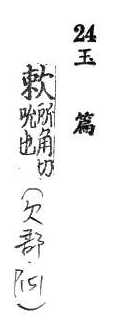 24 玉篇
欶 所角切
吮也
(欠部